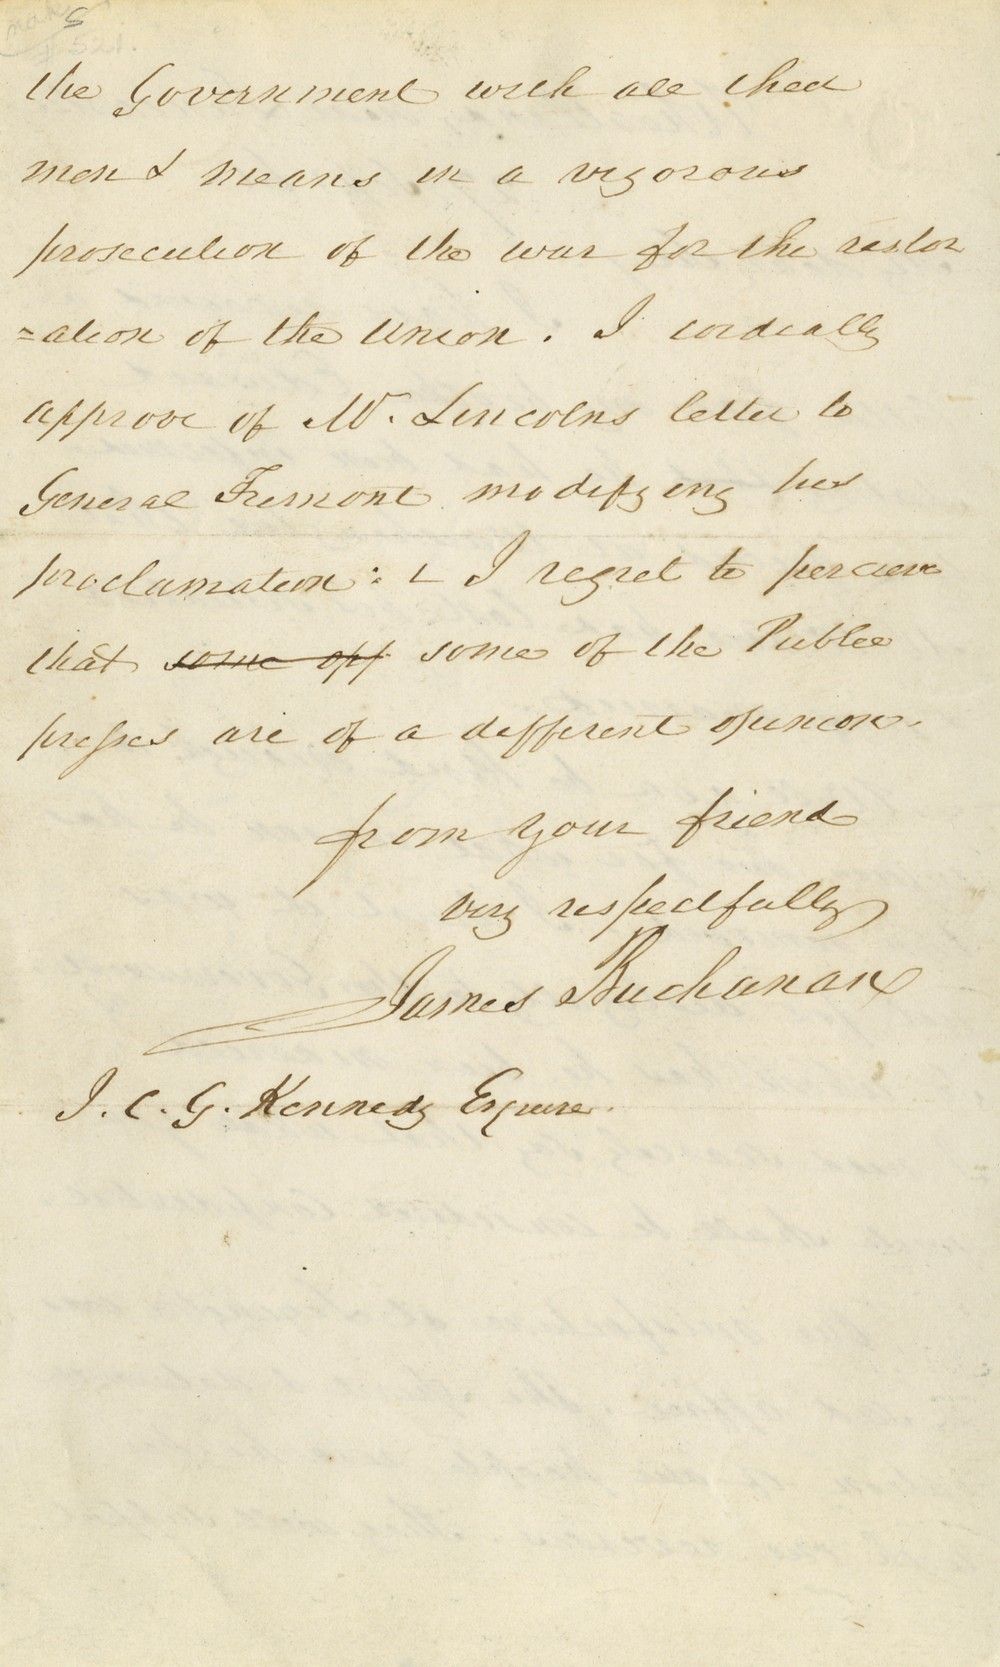 the Government with all thier
men & means in a vigorous
prosecution of the war for the restor
=ation of the Union. I cordially
approve of Mr. Lincolns letter to
General Fremont modifying his
proclamation: & I regret to percieve
that some opp some of the Public
presses are of a different opinion.
from your friend
very respectfully
James Buchanan
J. C. G. Kennedy Esquire.